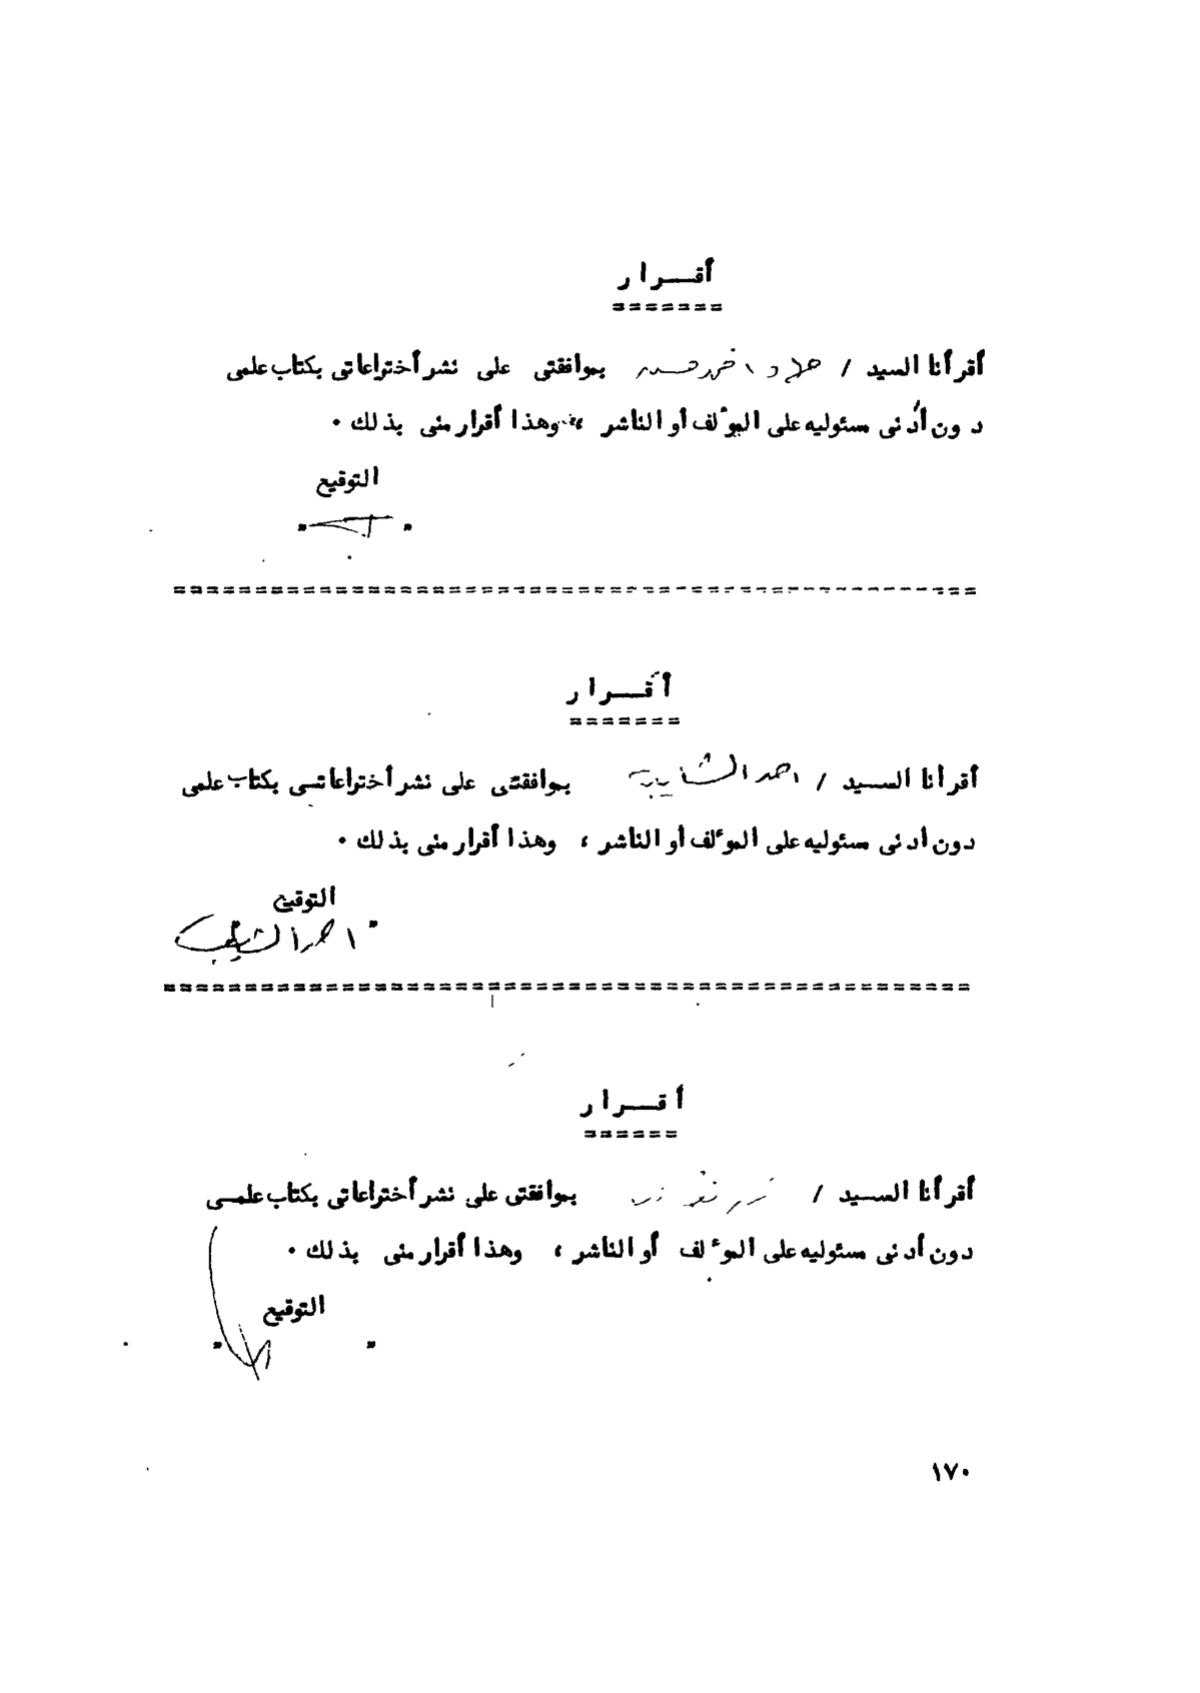 أقـــرار
=======
أقر أنا السيد / بموافقتى على نشر أختراعاتى بكتاب علمى
دون أدنى مسئوليه على المؤلف أو الناشر ، وهذا أقرار منى بذلك ٠
التوقيع
" "
أقـــرار
=======
أقر أنا السـيد / احمد الشايب بموافقتى على نشر أختراعاتـى بكتاب علمى
دون أدنى مسئوليه على المؤلف أو الناشر ، وهذا أقرار منى بذلك ٠
التوقيع
" احمد الشايب "
أقـــرار
======
أقر أنا السـيد / بموافقتى على نشر أختراعاتى بكتاب علمـى
دون أدنى مسئوليه على المؤلف أو الناشر ، وهذا أقرار منى بذلك ٠
التوقيع
" "
١٧٠